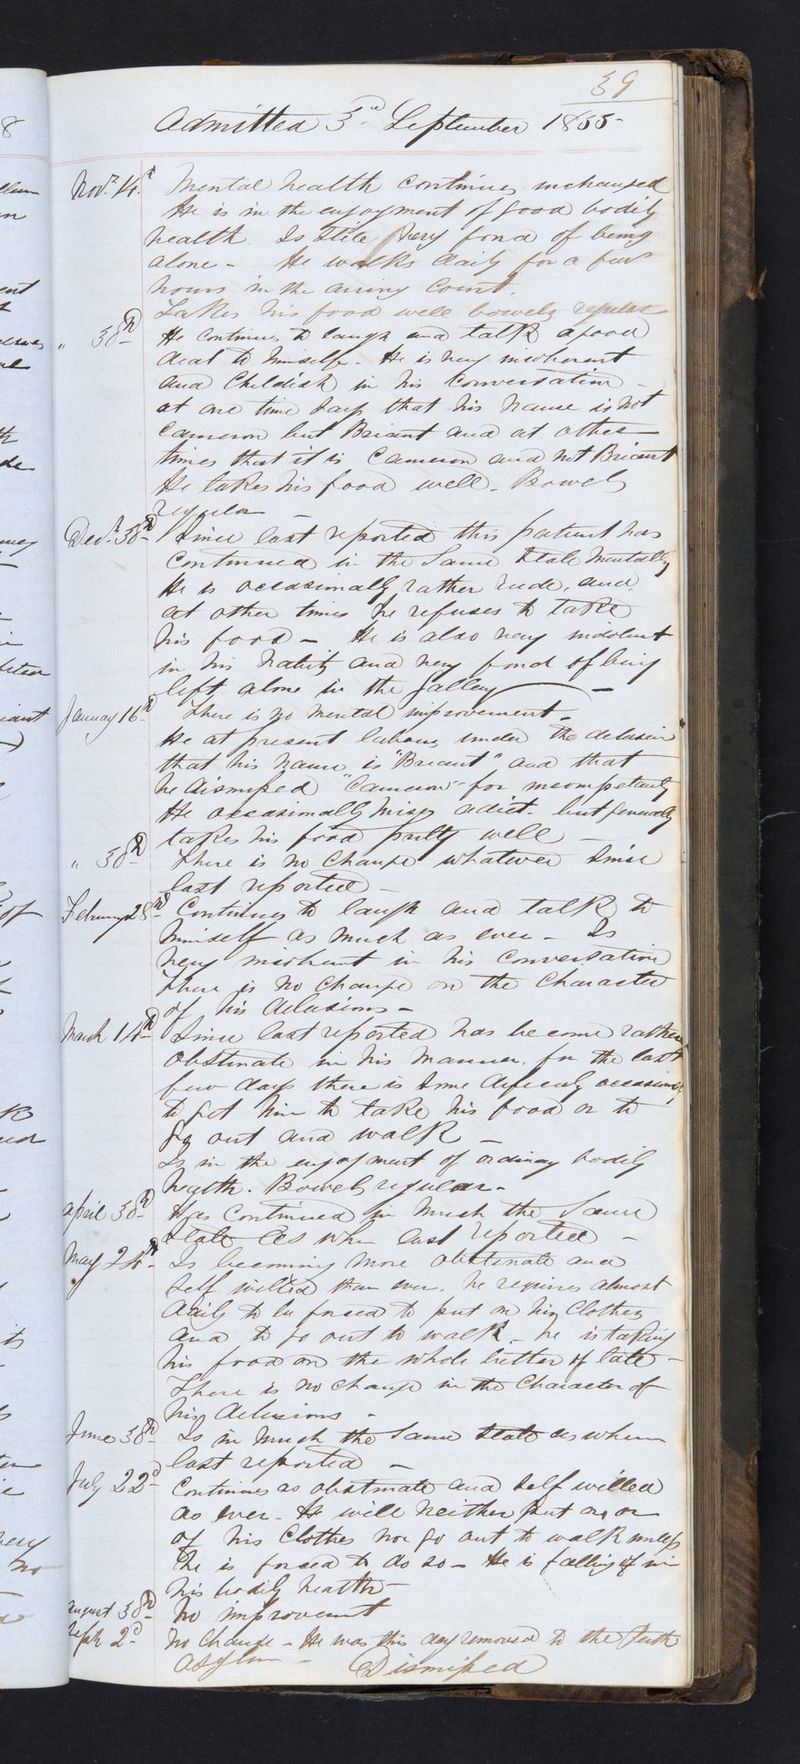 39
Admitted 3rd September 1855
Novr 14th Mental health continues unchanged
He is in the enjoyment of good bodily
health. Is still very fond of being
alone - He walks daily for a few
hours in the airing Court.
Takes his food well bowels regular
" 30th He continues to laugh and talk a good
deal to himself. He is very incoherent
and Childish in his Conversation -
at one time says that his name is not
Cameron but Briant and at other
times that it is Cameron and not Briant
He takes his food well. Bowels
regular -
Decr 30th Since last reported this patient has
continued in the same state mentally
He is occasionally rather rude, and
at other times he refuses to take
his food - He is also very indolent
in his habits and very fond of being
left alone in the Gallery -
January 16th There is no mental improvement -
He at present labours under the delusion
that his name is "Briant" and that
he dismissed "Cameron" for incompetency
He occasionally misses a diet. but generally
takes his food pretty well -
" 30th There is no change whatever since
last reported -
February 28th Continues to laugh and talk to
himself as much as ever - Is
very incoherent in his Conversation
There is no change on the Character
of his delusions -
March 14th Since last reported has become rather
obstinate in his manner, for the last
few days there is some difficulty occasionally
to get him to take his food or to
go out and walk -
Is in the enjoyment of ordinary bodily
health. Bowels regular -
April 30th Has Continued in much the Same
State as when last reported -
May 24th Is becoming more obstinate and
self willed than ever. he requires almost
daily to be forced to put on his Clothes
and to go out to walk - he is taking
his food on the whole better of late -
There is no change in the Character of
his delusions -
June 30th Is in much the Same State as when
last reported -
July 22d Continues as obstinate and self willed
as ever - He will neither put on or
of his Clothes nor go out to walk unless
he is forced to do so - He is falling off in
his bodily health -
August 30th No improvement
Sepr 2d No change - He was this day removed to the Perth
Asylum - Dismissed